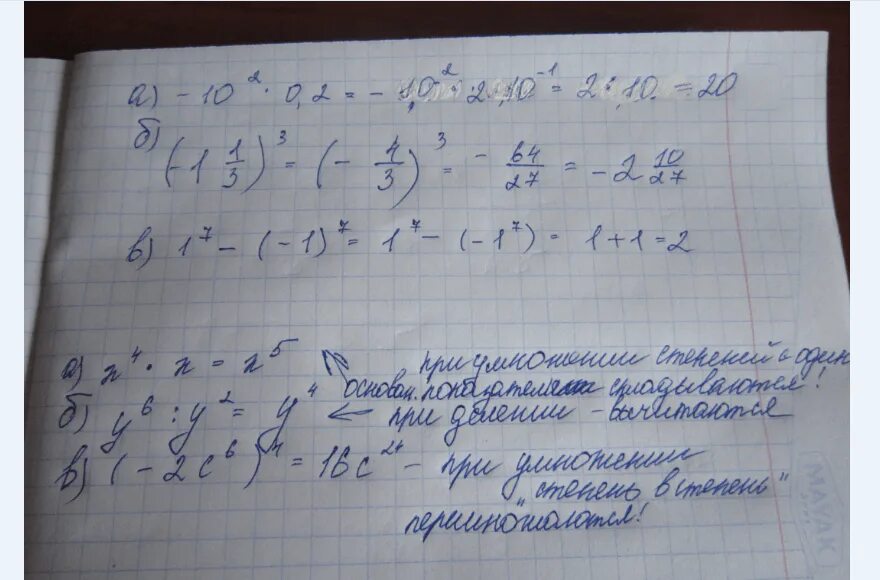 а) - 10² · 0,2 = - 10² · 2 · 10⁻¹ = 2 · 10 = 20
б)
(-1 1/3)³ = (- 4/3)³ = - 64/27 = -2 10/27
в) 1⁷ - (-1)⁷ = 1⁷ - (-1⁷) = 1 + 1 = 2
а) x⁴ · x = x⁵ при умножении степеней с один
основан. показатели складываются!
б) y⁶ : y² = y⁴ ← при делении - вычитаются
в) (-2c⁶)⁴ = 16c²⁴ - при умножении
"степень в степень"
перемножаются!
MAYAK